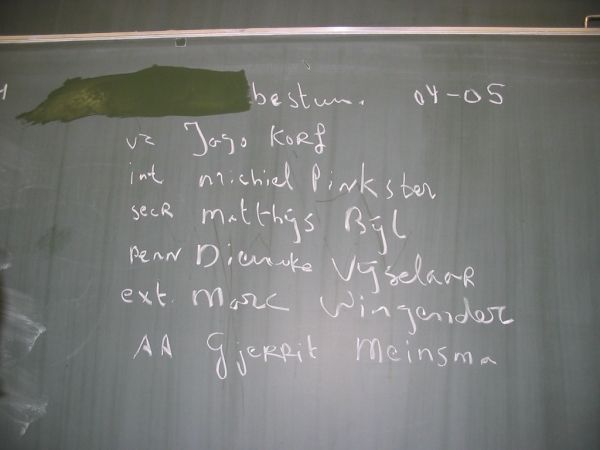 bestuur. 04-05
vz Jago Korf
int michiel Pinkster
secR matthijs Bijl
penn Dieuwke Vijselaar
ext. Marc Wingender
AA Gjerrit Meinsma